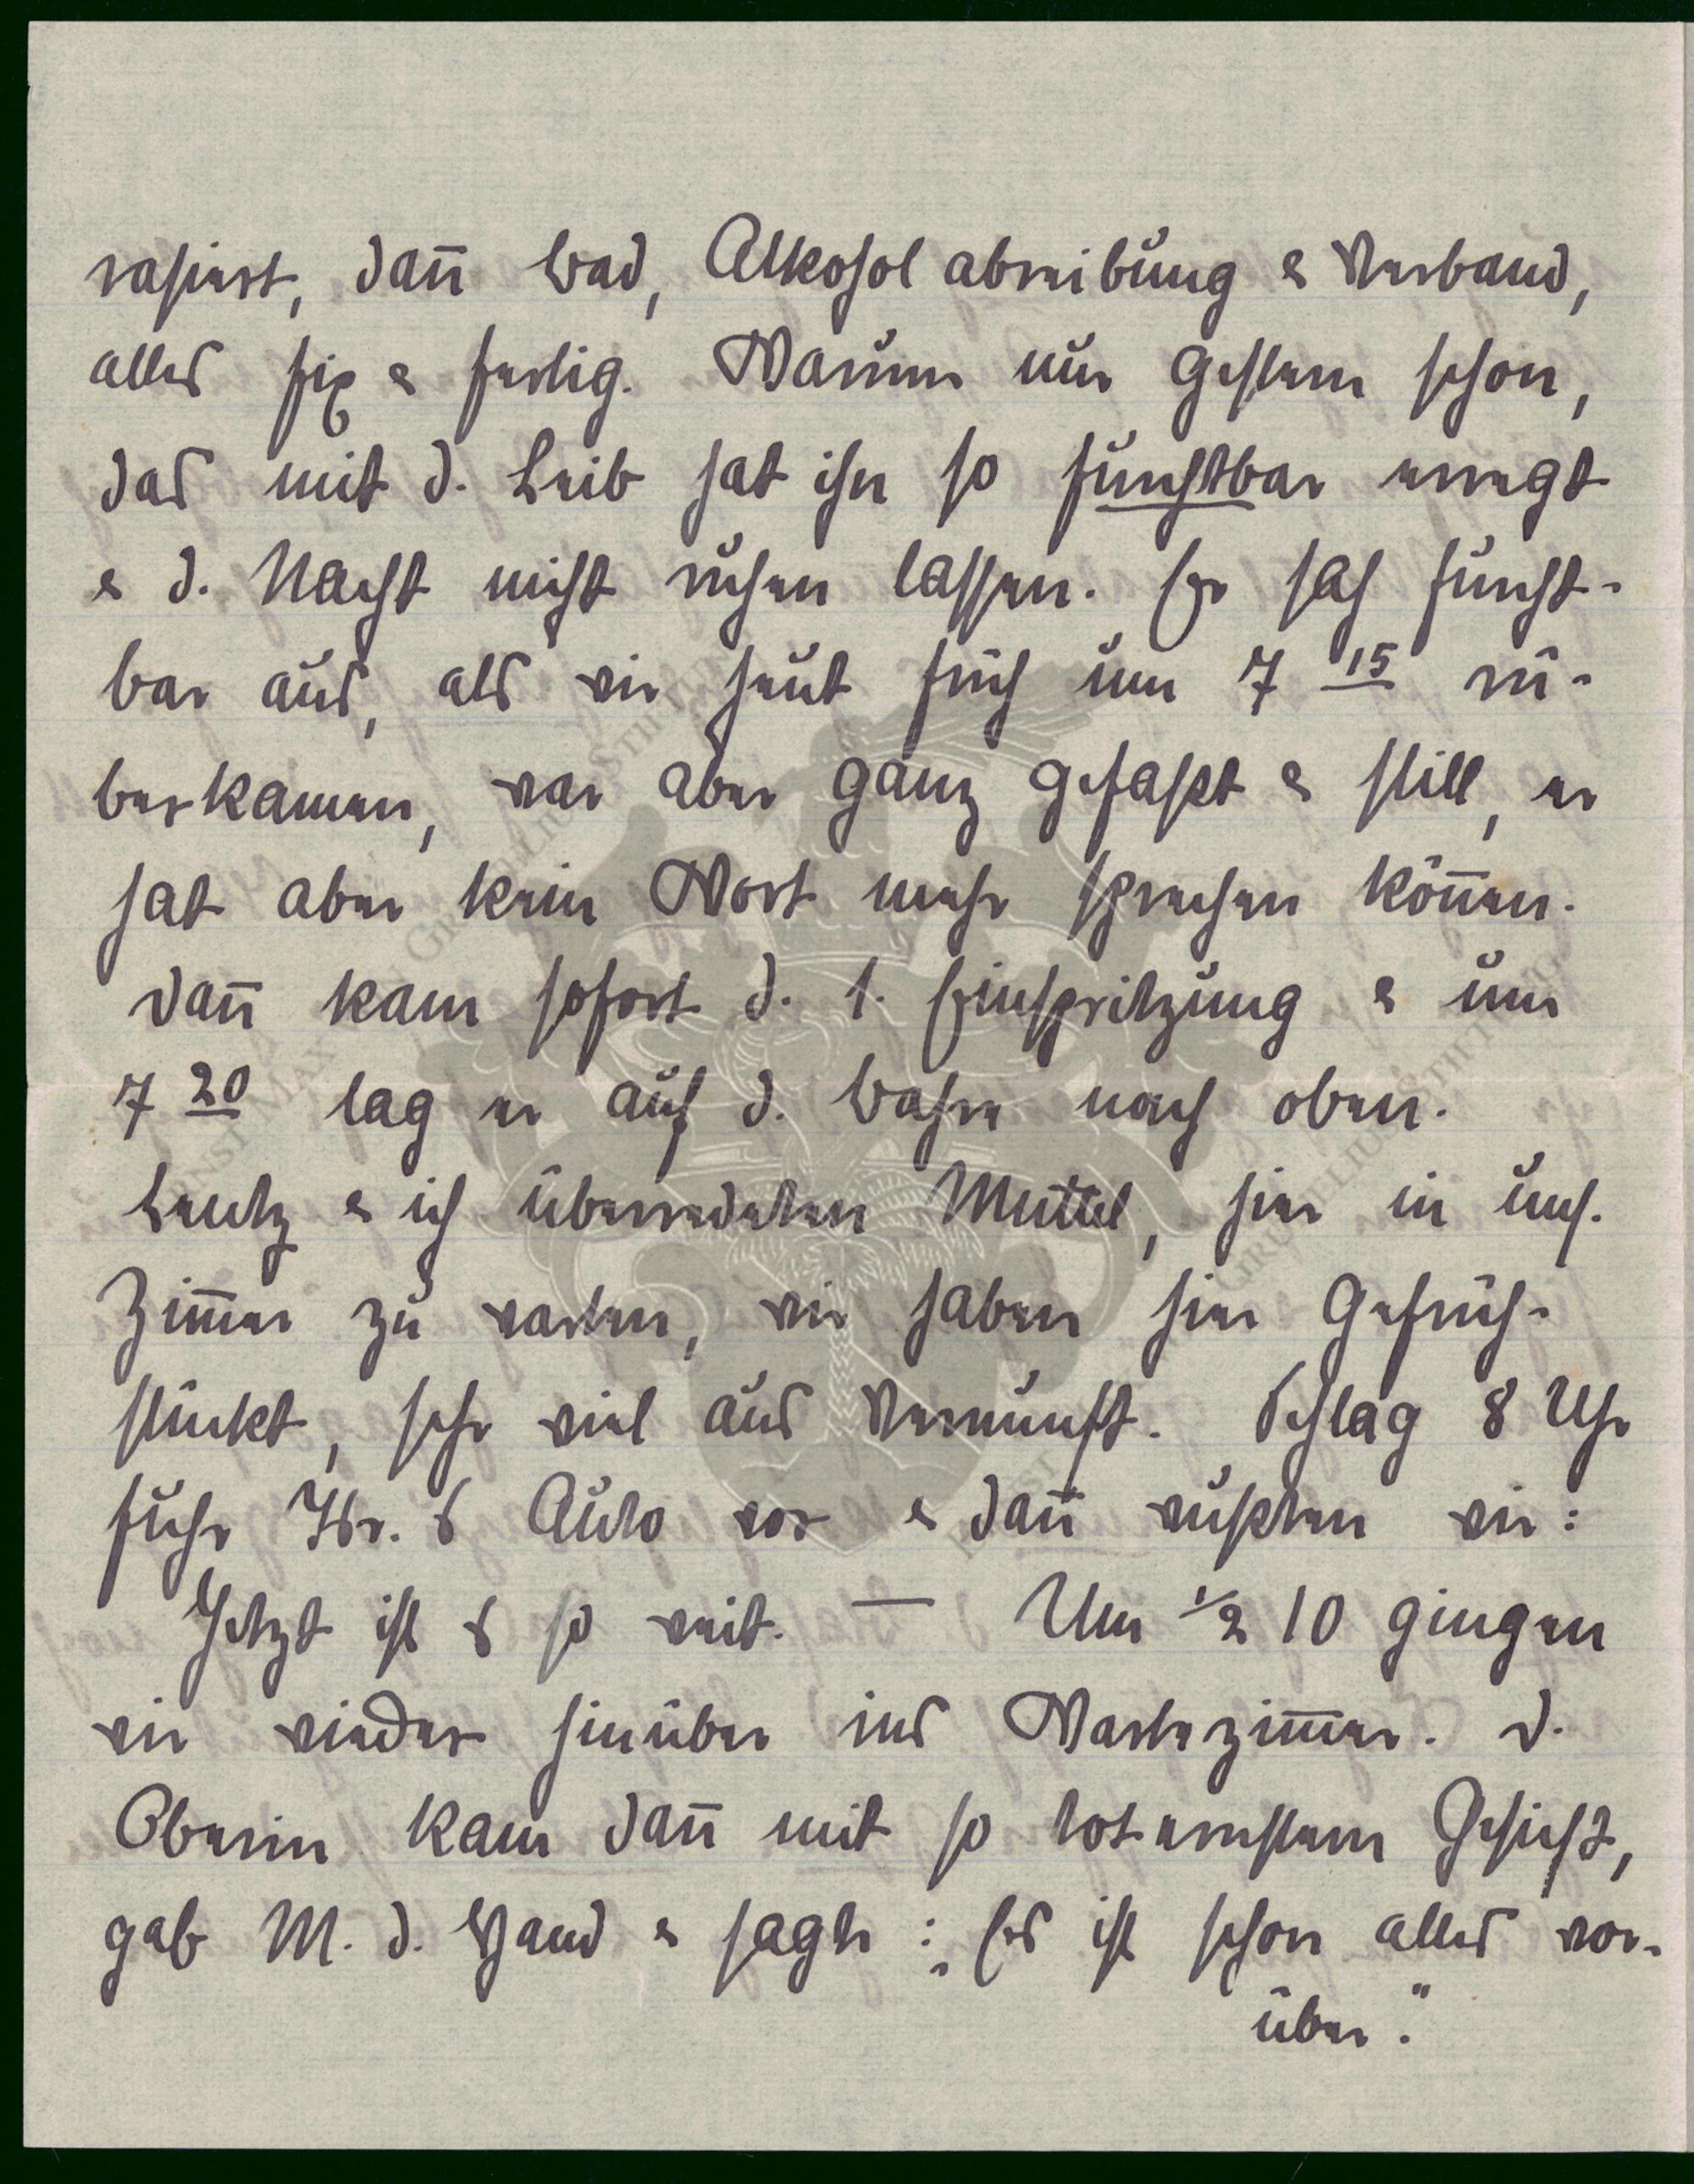 rasiert, dann Bad, Alkoholabreibung & Verband,
alles fix & fertig. Warum nur gestern schon,
das mit d. Leib hat ihn so furchtbar erregt
& d. Nacht nicht ruhen lassen. Er sah furcht-
bar aus, als wir heut früh um 7 15 rü-
berkamen, war aber ganz gefaßt & still, er
hat aber kein Wort mehr sprechen können.
Dann kam sofort d. 1. Einspritzung & um
7 20 lag er auf d. Bahre nach oben.
& ich überredeten Muttel, hier in uns.
Zimmer zu warten, wir haben hier gefrüh-
stückt, sehr viel aus Vernunft. Schlag 8 Uhr
fuhr Auto vor & dann wußten wir:
Jetzt ist es so weit. — Um ½ 10 gingen
wir wieder hinüber ins Wartezimmer. D.
Oberin kam dann mit so toternstem Gesicht,
gab M. d. Hand & sagte: „Es ist schon alles vor-
über."